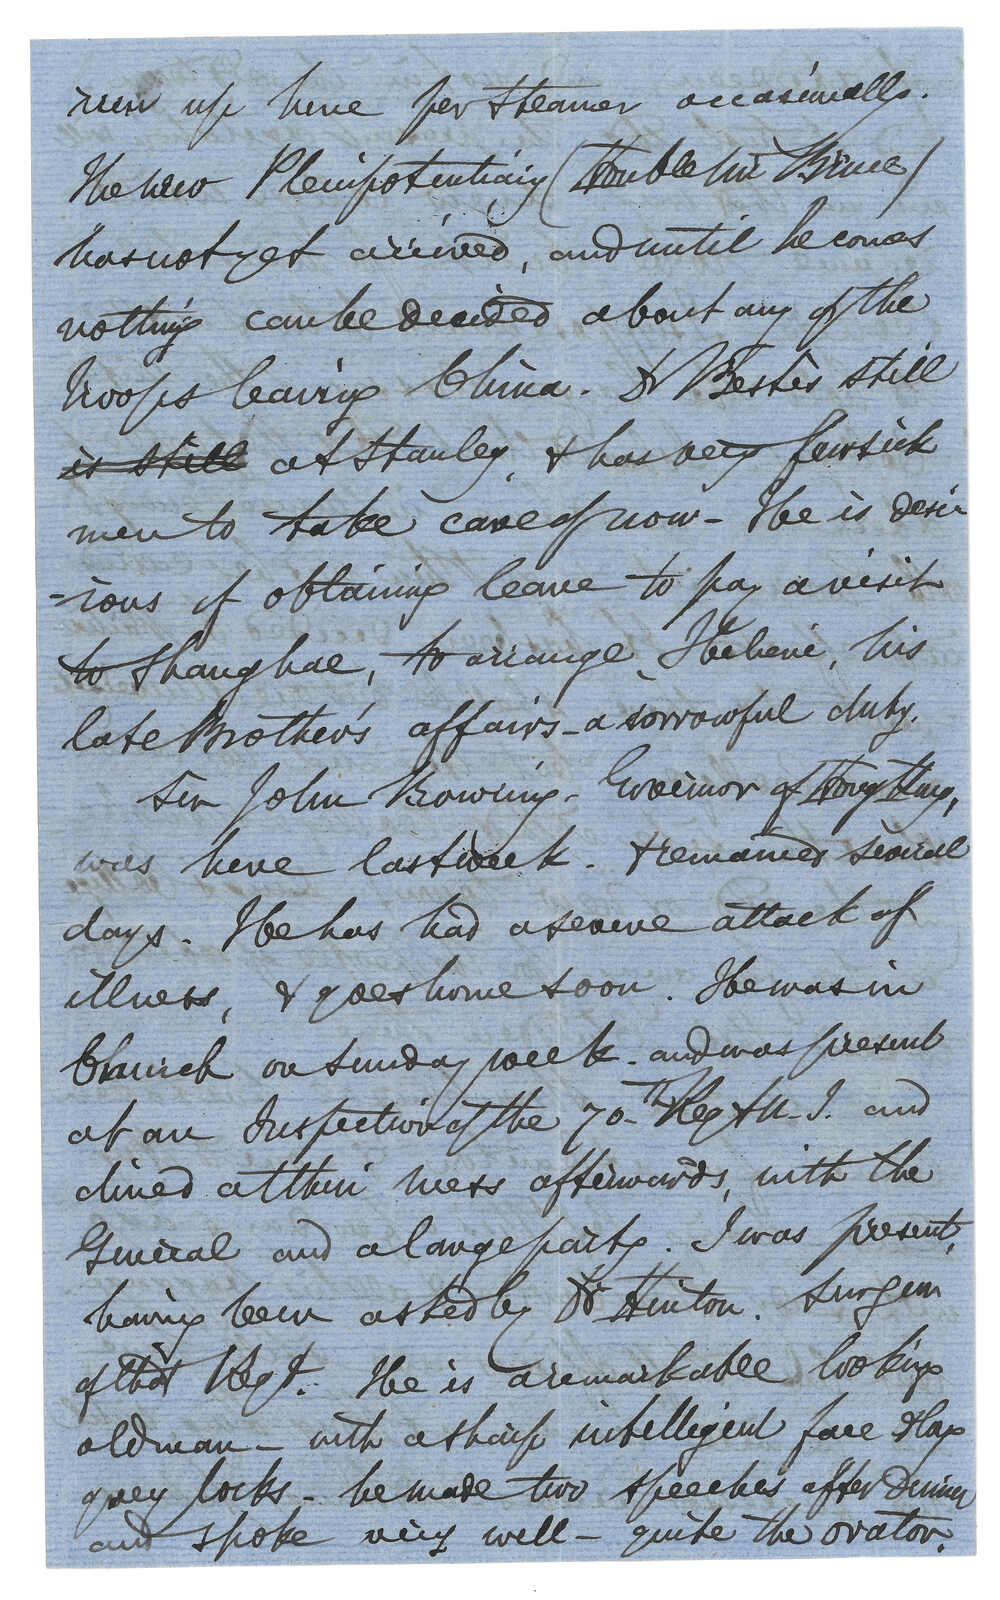 run up here per Steamer occasionally.
The new Plenipotentiary (Honble Mr Bruce)
has not yet arrived, and until he comes
nothing can be decided about any of the
Troops leaving China. Dr Bestes still
is still at Stanley, & has very few sick
men to take care of now - He is desir
-ious of obtaining leave to pay a visit
to Shanghae, to arrange, I believe, his
late Brother's affairs - a sorrowful duty.
Sir John Bowring - Governor of Hong Kong,
was here last week - & remained several
days. He has had a severe attack of
illness, & goes home soon. He was in
Church on Sunday week - and was present
at an Inspection of the 70th Regt N.I. and
dined at their mess afterwards, with the
General and a large party. I was present,
having been asked by Dr Hinton. Surgeon
of that Regt. He is a remarkable looking
old man - with a sharp intelligent face &
grey locks - he made two speeches after dinner
and spoke very well - quite the orator.